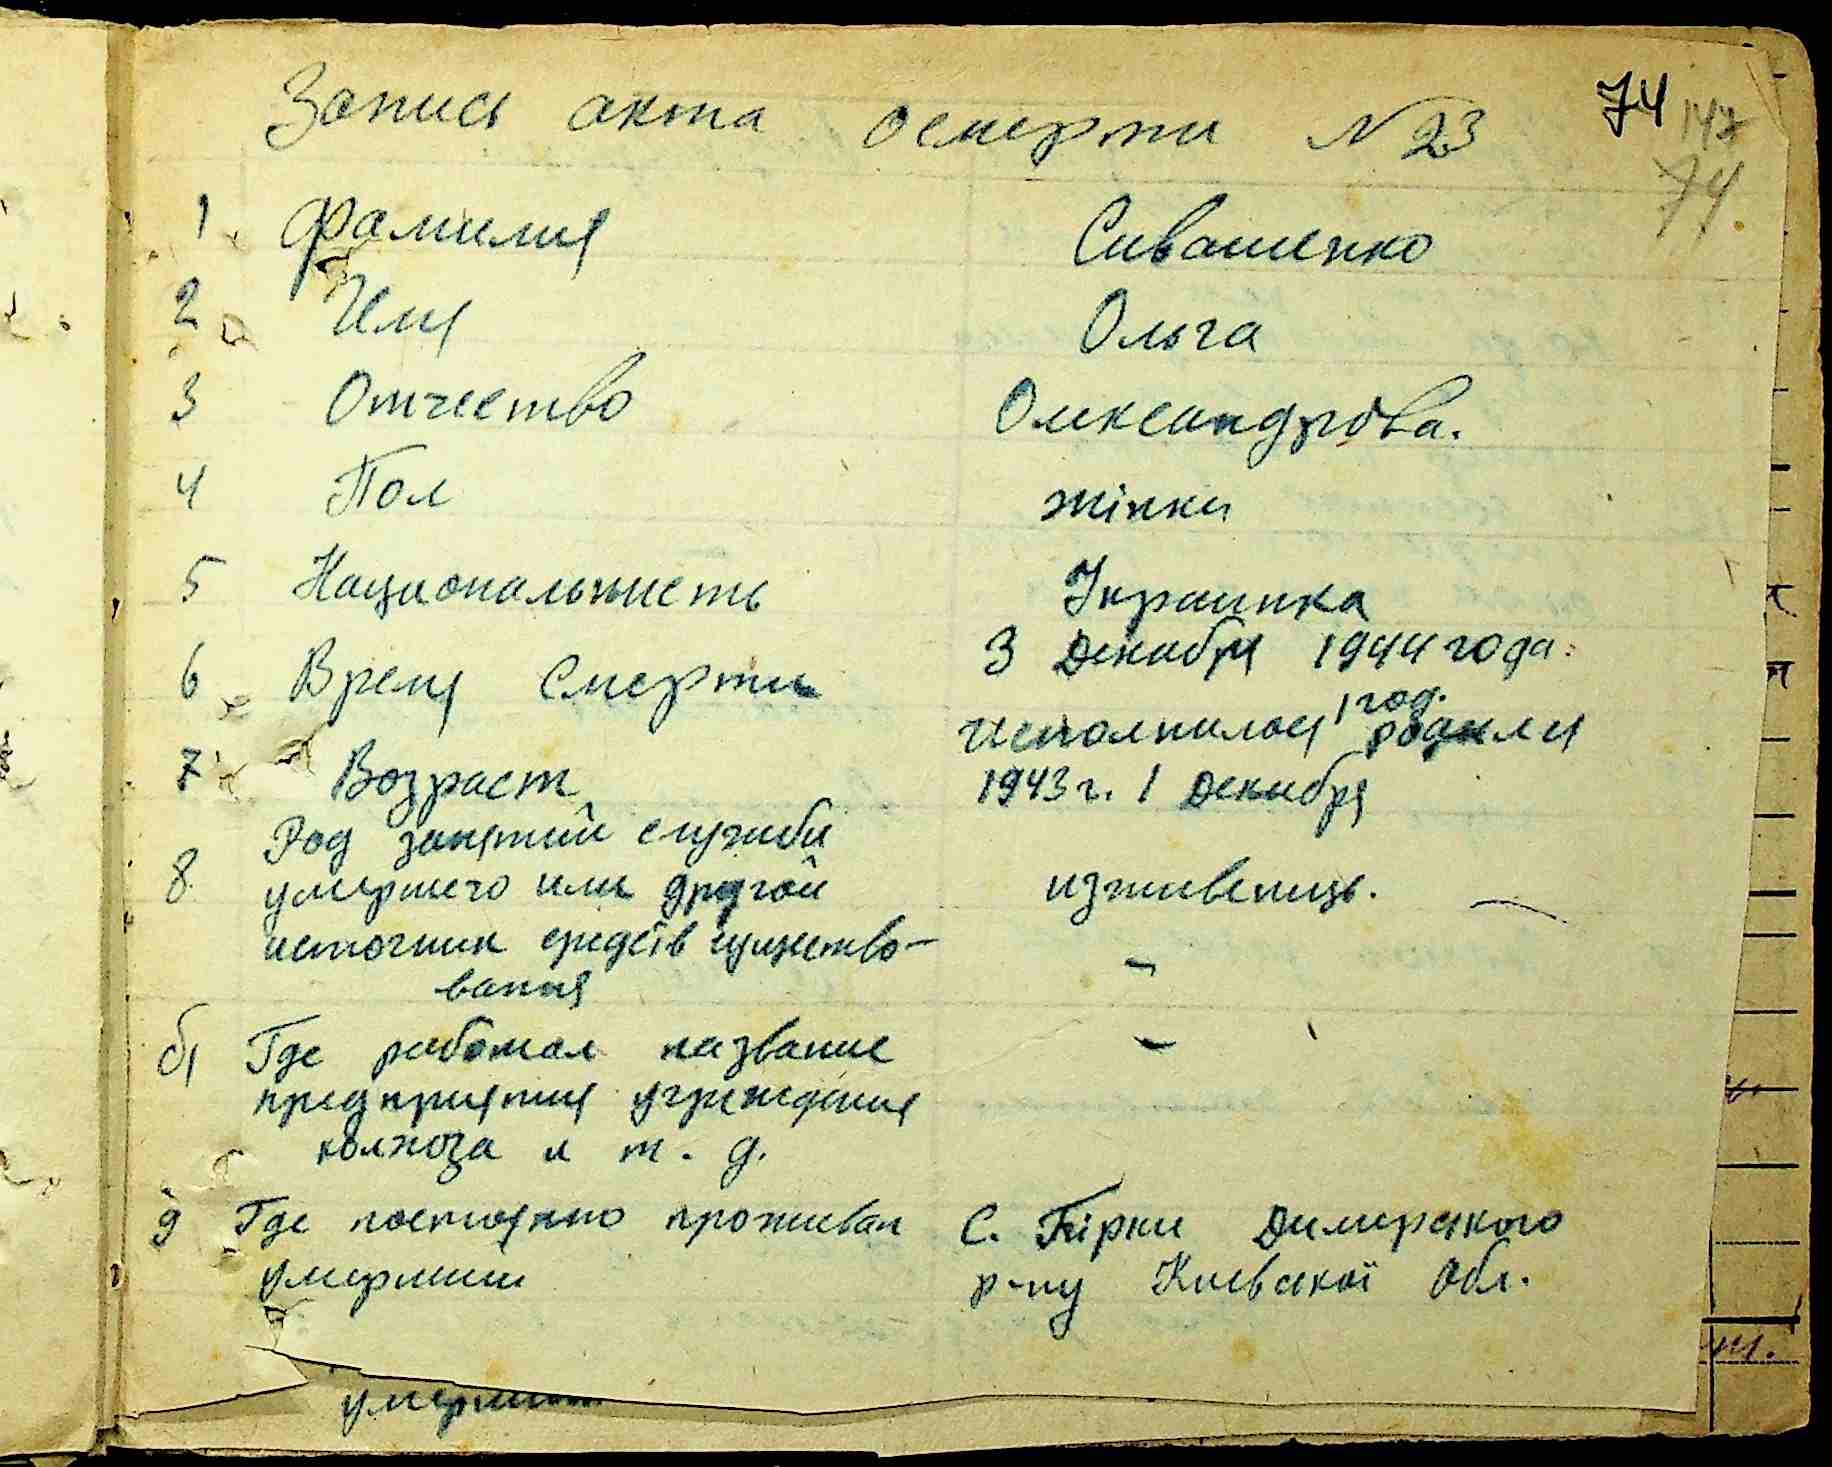 Запись акта о смерти N 23
74
147
74.
1. Фамилия Сивашенко
2 Имя Ольга
3 Отчество Олександрова.
4 Пол жінки
5 Национальнисть Украинка
6 Время Смерти 3 Декабря 1944 года.
1 год.
7 Возраст исполнилося родился
1943 г. 1 Декабря
Род занятий служби
8 умершего или другой изживенць.
источник средств существо-
вания -
б) Где работал название -
предприятия учреждения
колхоза и т. д.
9 Где постоянно проживал С. Гірки Димерского
умерший р-ну Киевскої Обл.
умерший